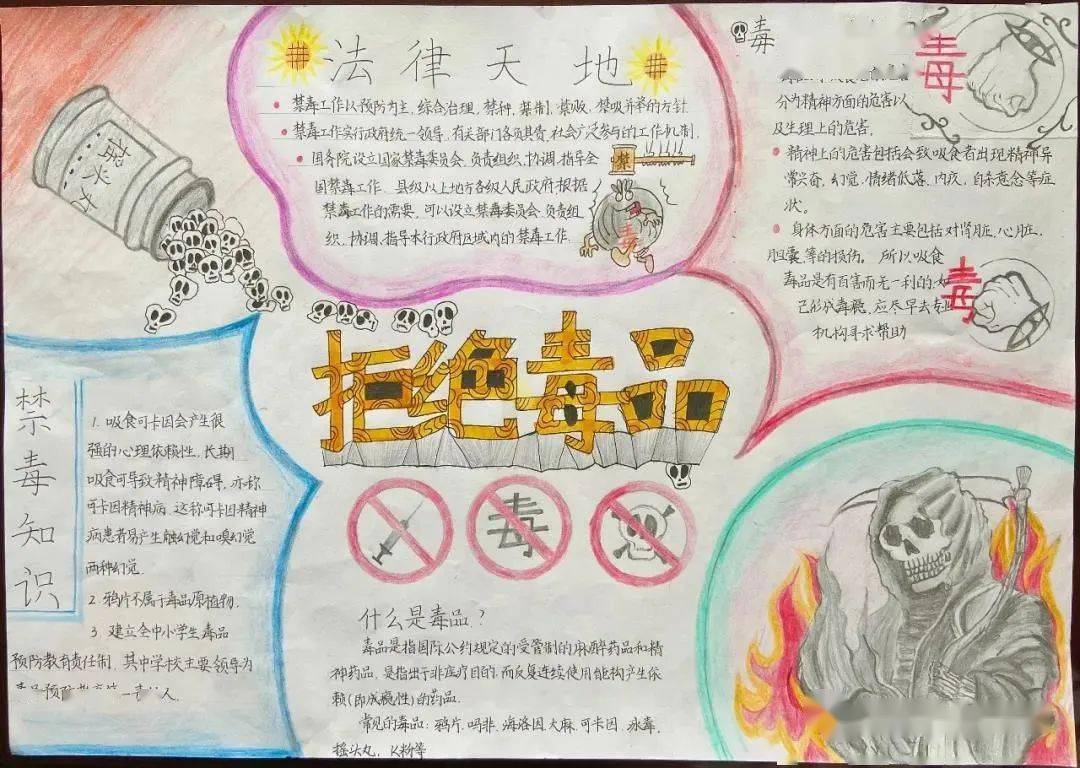 法律天地
禁毒工作以预防为主,综合治理,禁种,禁制,禁贩,禁吸并举的方针
禁毒工作实行政府统一领导,有关部门各负其责,社会广泛参与的工作机制.
国务院设立国家禁毒委员会,负责组织,协调,指导全
国禁毒工作.县级以上地方各级人民政府根据
禁毒工作的需要,可以设立禁毒委员会.负责组
织,协调,指导本行政区域内的禁毒工作.
禁
毒
毒
毒
分为精神方面的危害以
及生理上的危害.
精神上的危害包括会致吸食者出现精神异
常兴奋,幻觉,情绪低落,内疚,自杀意念等症
状。
身体方面的危害主要包括对肾脏,心脏,
胆囊,等的损伤。所以吸食
毒品是有百害而无一利的,如
己形成毒瘾,应尽早去专业
机构寻求帮助
毒
拒绝毒品
毒
禁毒知识
1.吸食可卡因会产生很
强的心理依赖性,长期
吸食可导致精神障碍,亦称
可卡因精神病.这称可卡因精神
病患者易产生触幻觉和嗅幻觉
两种幻觉.
2.鸦片不属于毒品原植物.
3.建立全中小学生毒品
预防教育责任制,其中学校主要领导为
什么是毒品?
毒品是指国际公约规定的受管制的麻醉药品和精
神药品,是指出于非医疗目的而反复连续使用能构产生依
赖(即成瘾性)的药品.
常见的毒品:鸦片.吗非.海洛因.大麻.可卡因.冰毒,
摇头丸,K粉等